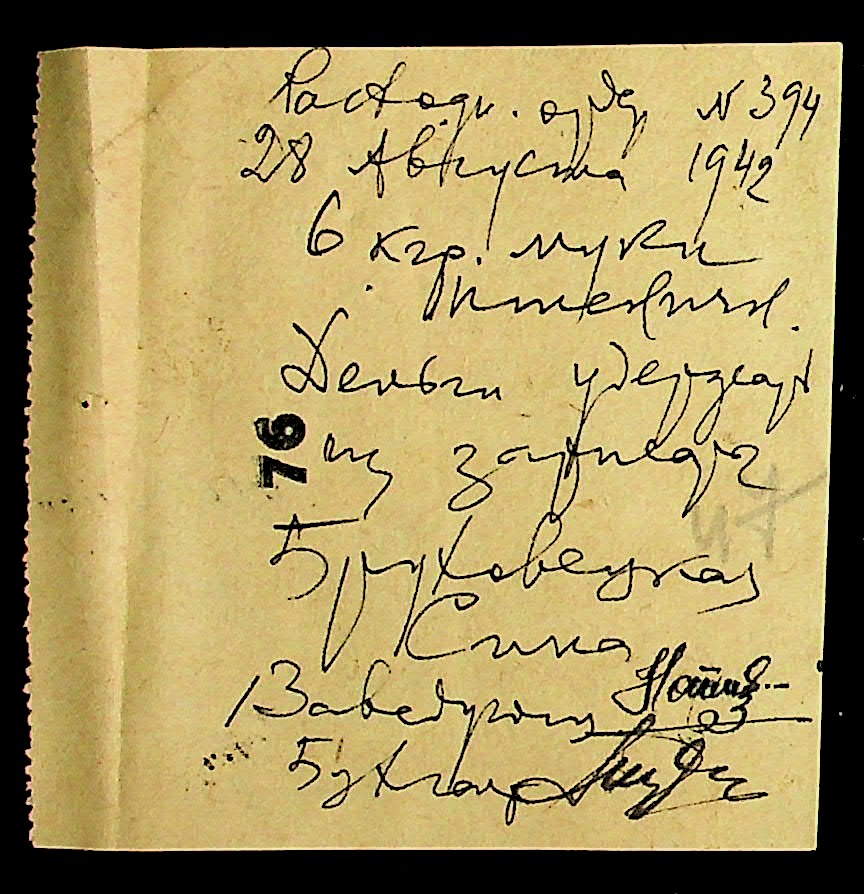 Расходн. орд. N 394
28 Августа 1942
6 кгр. муки
пшеничн.
Деньги удержат
из зарплаты
76
Бруховецкая
Сима
Заведующ
Бухгалтер
47